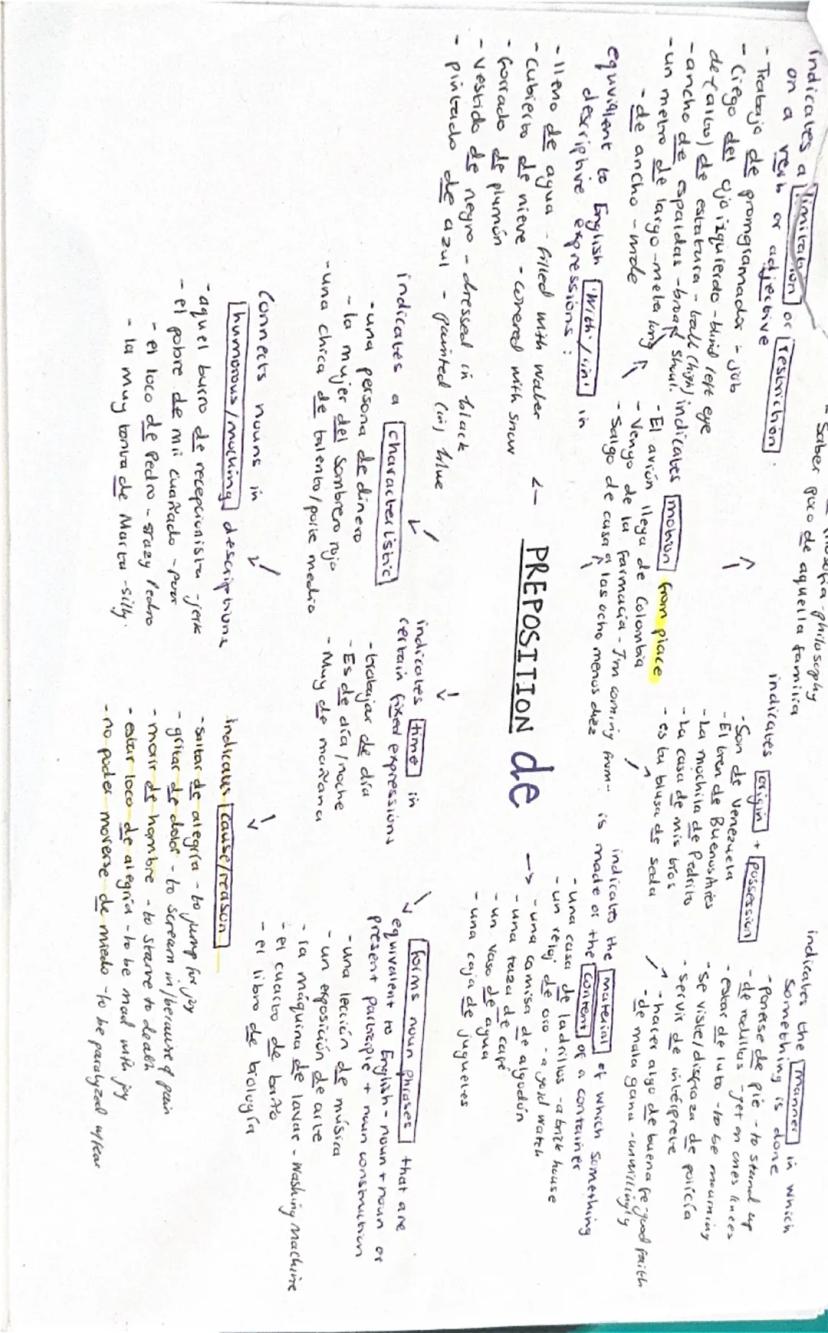 philosophy
- Saber poco de aquella familia
indicates a limitation or restriction :
on a verb or adjective
- Trabajo de promgramador - job
- Ciego del ojo izquierdo - blind left eye
de (alto) de estatura - tall (high)
- ancho de espaldas - broad should.
- un metro de largo - meta long
- de ancho - wide
equivilent to English 'with/in' in
descriptive expressions :
- lleno de agua - filled with water
- cubierto de nieve - covered with snow
- forrado de plumón
- vestido de negro - dressed in black
- pintado de azul - painted (in) blue
indicates motion from place
- El avión llega de Colombia
- Vengo de la farmacia - I'm coming from..
- Salgo de casa a las ocho menos diez
indicates origin + possession
- Son de Venezuela
- El tren de Buenos Aires
- La mochila de Pedrito
- La casa de mis bros
- es tu blusa de seda
indicates the manner in which
something is done
- ponerse de pie - to stand up
- de rodillas - get on ones knees
- estar de luto - to be mourning
- se viste/disfraza de policía
- servir de intérprete
- hacer algo de buena fe good faith
- de mala gana - unwillingly
PREPOSITION de
indicates the material of which something
is made or the content of a container
- una casa de ladrillos - a brick house
- un reloj de oro - a gold watch
- una camisa de algodón
- una taza de café
- un vaso de agua
- una caja de juguetes
indicates a characteristic
- una persona de dinero
- la mujer del sombrero rojo
- una chica de talento/
indicates time in
certain fixed expressions
- trabajar de día
- Es de día/noche
- Muy de mañana
forms noun phrases that are
equivalent to English - noun + noun or
present participle + noun construction
- una lección de música
- un exposición de arte
- la máquina de lavar - washing machine
- el cuarto de baño
- el libro de biología
connects nouns in
humorous/mocking descriptions
- aquel burro de recepcionista - jerk
- el pobre de mi cuañado - poor
- el loco de Pedro - crazy Pedro
- la muy tonta de Marta - silly
indicates cause/reason
- saltar de alegría - to jump for joy
- gritar de dolor - to scream in/because of pain
- morir de hambre - to starve to death
- estar loco de alegría - to be mad with joy
- no poder moverse de miedo - to be paralyzed w/fear